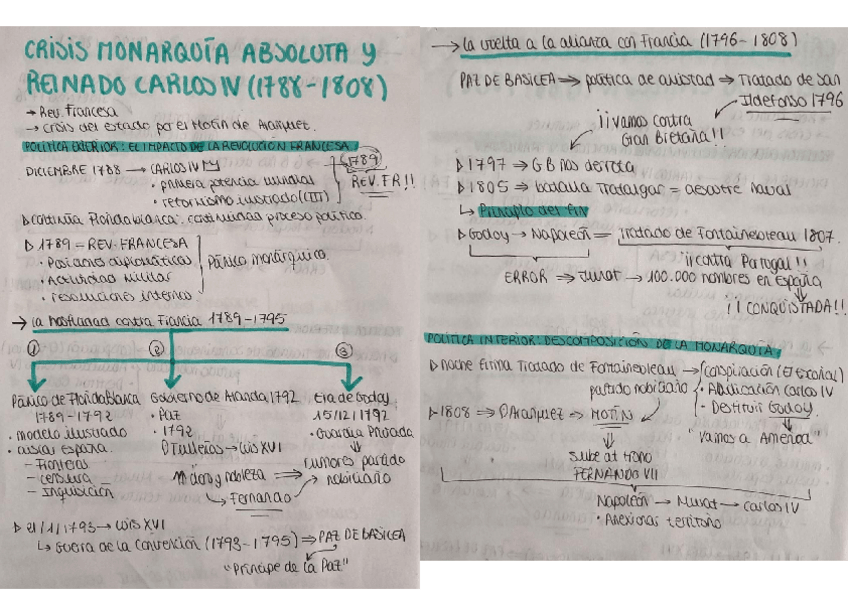 CRISIS MONARQUÍA ABSOLUTA Y
REINADO CARLOS IV (1788-1808)
→ Rev. francesa
→ crisis del estado por el Motín de Aranjuez.
POLÍTICA EXTERIOR: EL IMPACTO DE LA REVOLUCIÓN FRANCESA
DICIEMBRE 1788 → CARLOS IV
· primera potencia mundial
· reformismo ilustrado (CIII)
1789
REV. FR!!
▷ continúa Floridablanca: continuando proceso político.
▷ 1789 = REV. FRANCESA
· Posiciones diplomáticas
· Actividad militar
· resoluciones internas
Pánico monárquico.
→ la hostilidad contra Francia 1789-1795
① ② ③
Pánico de Floridablanca
1789-1792
· modelo ilustrado
· aislar españa.
- Fronteras
- censura
- Inquisición
Gobierno de Aranda 1792
· Paz
· 1792
▷ Tullerías → Luis XVI
Era de Godoy
15/12/1792
· Guardia Privada
⇓
rumores partido
nobiliario
y nobleza ⇒
↳ Fernando
▷ 21/1/1793 → Luis XVI
↳ Guerra de la Convención (1793-1795) ⇒ PAZ DE BASILEA
"Príncipe de la Paz"
→ la vuelta a la alianza con Francia (1796-1808)
PAZ DE BASILEA → política de amistad → Tratado de San
Ildefonso 1796
¡¡vamos contra
Gran Bretaña!!
▷ 1797 → GB nos derrota
▷ 1805 → batalla Trafalgar = desastre naval
↳ Principio del fin
▷ Godoy → Napoleón = Tratado de Fontainebleau 1807.
¡¡contra Portugal!!
ERROR ⇒ Murat → 100.000 hombres en España
⇓
¡¡CONQUISTADA!!
POLÍTICA INTERIOR: DESCOMPOSICIÓN DE LA MONARQUÍA
▷ noche firma Tratado de Fontainebleau → Conspiración (El Escorial)
partido nobiliario
· Abdicación Carlos IV
- Destituir Godoy.
"Vamos a América"
▷ 1808 ⇒ Aranjuez ⇒ MOTÍN
⇓
sube al trono
FERNANDO VII
Napoleón → Murat → Carlos IV
· Anexionar territorio